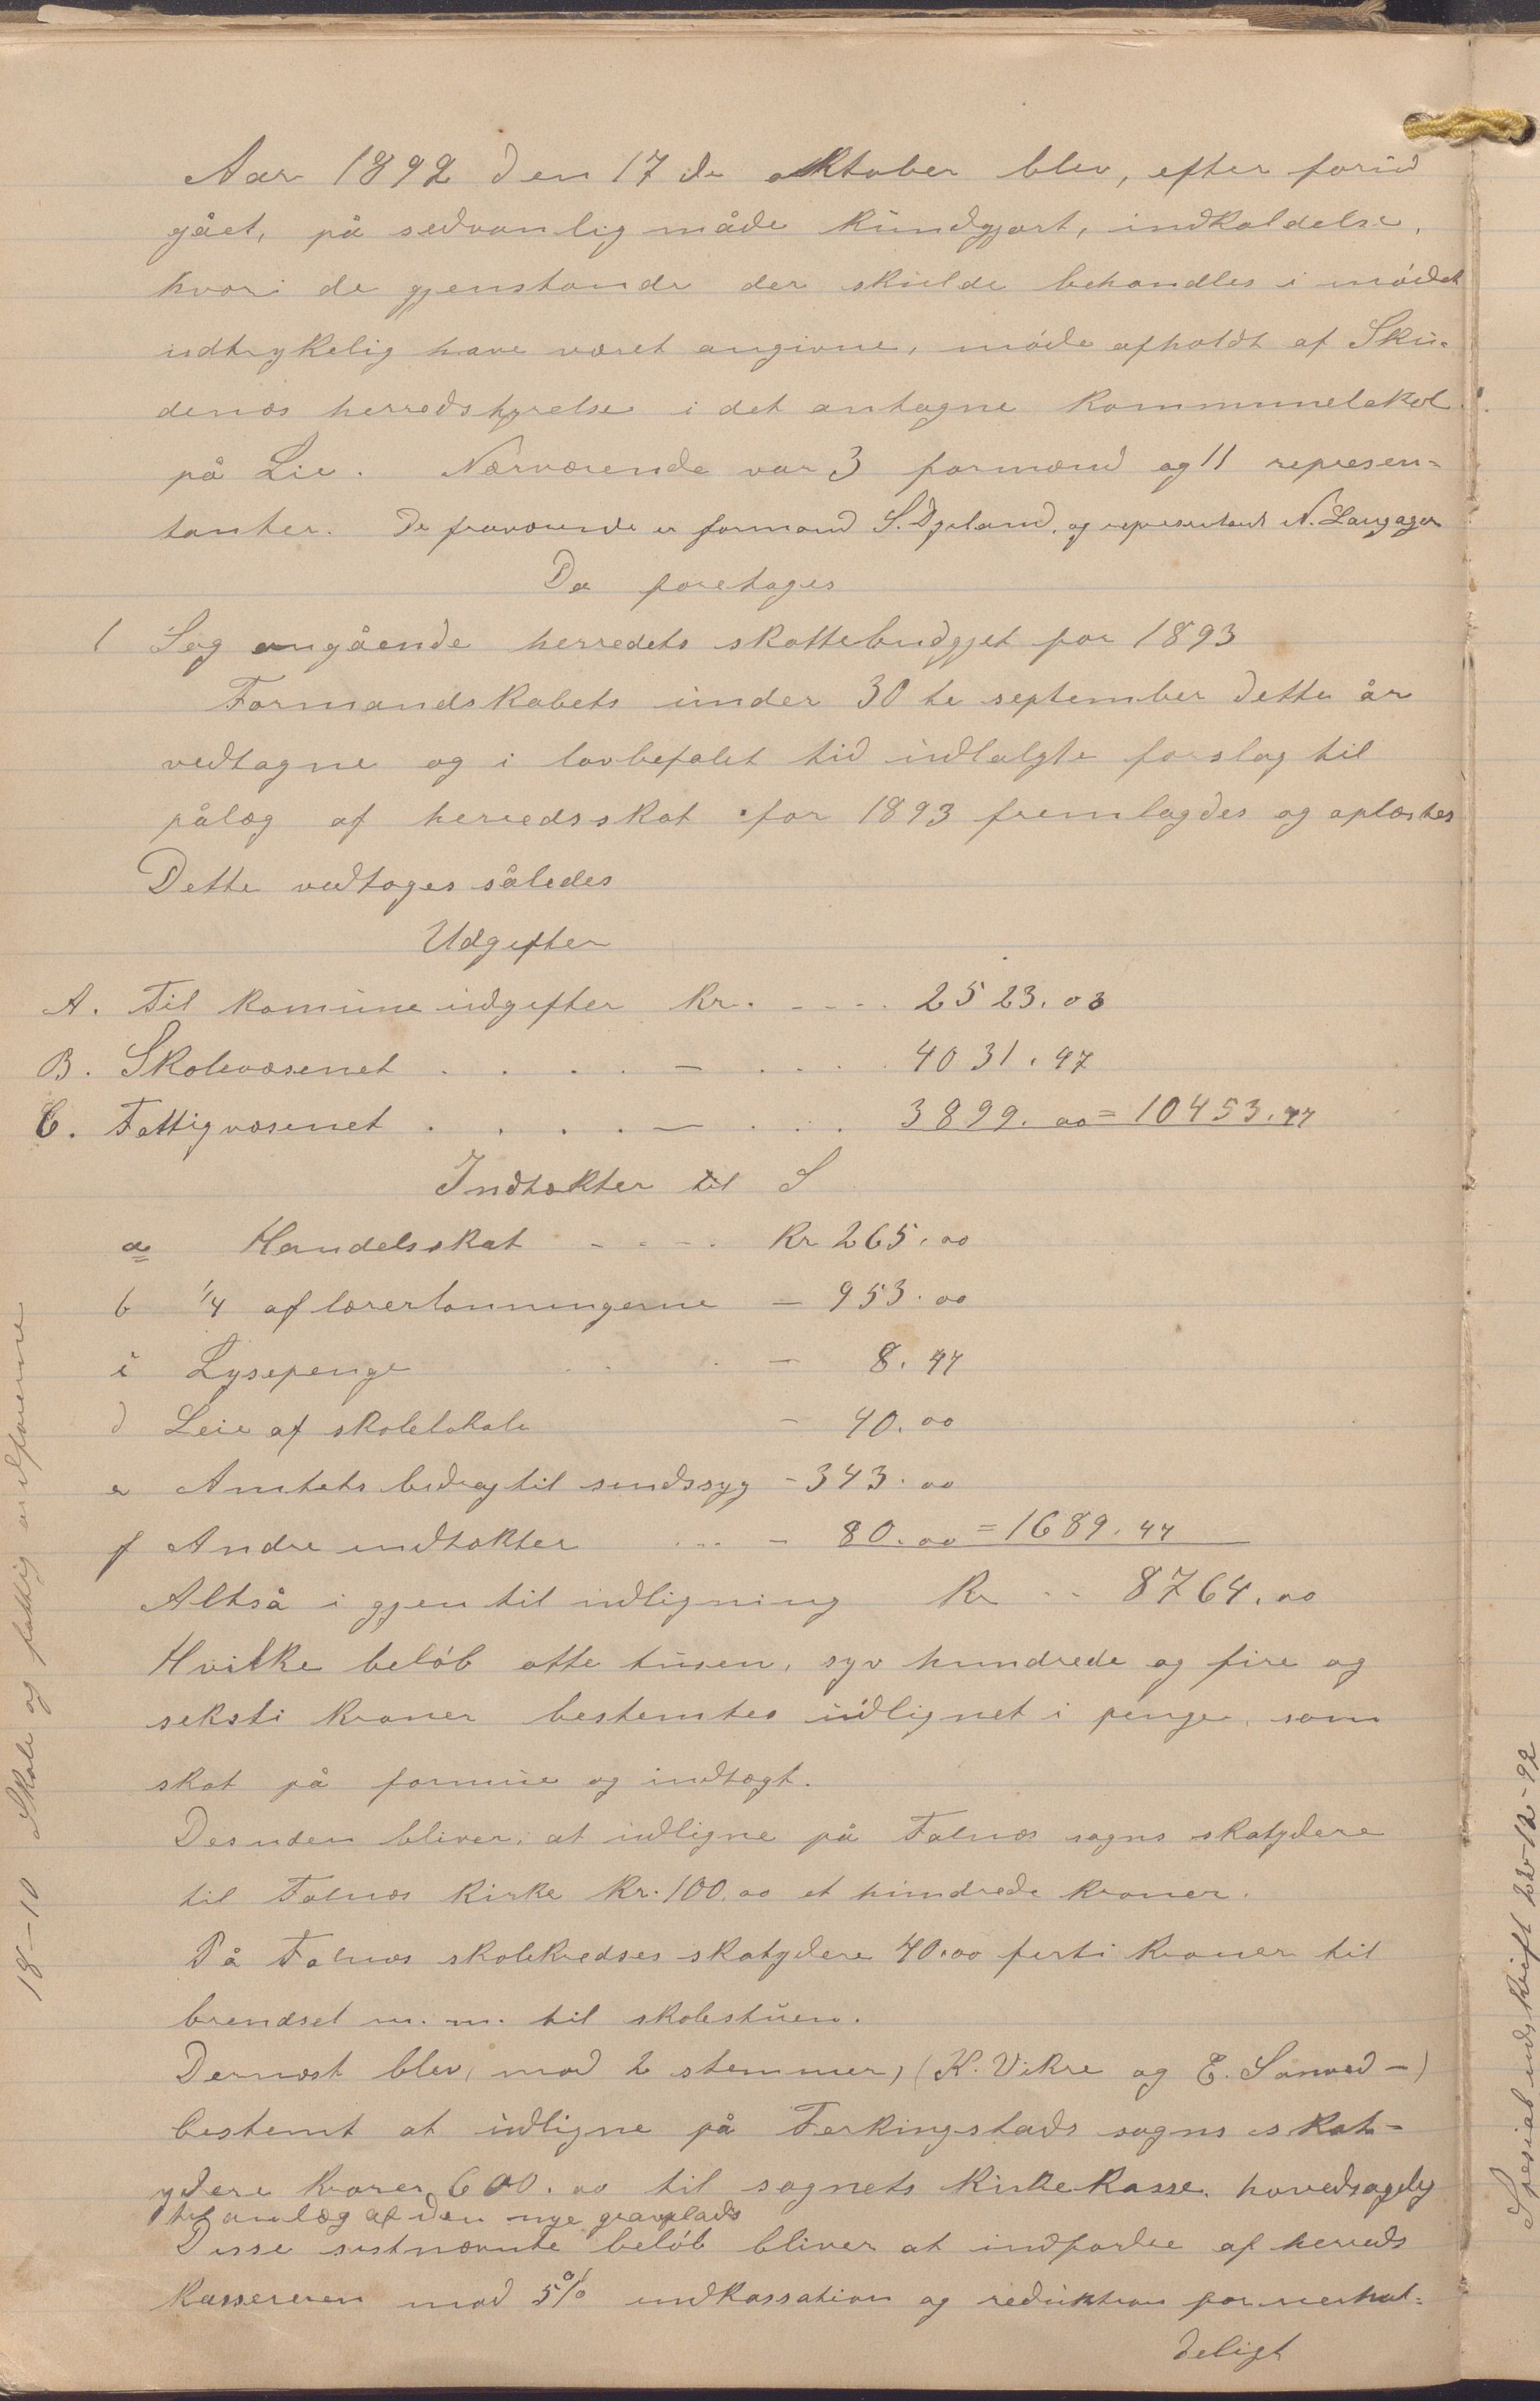 Aar 1892 den 17 de oktober blev, efter forud
gået, på sedvanlig måde kundgjort, indkaldelse,
hvori de gjenstande der skulde behandles i mödet
udtrykelig have været angivne, möde afholdt af Sku-
denæs herredstyrelse i det antagne kommunelokol
på Lie. Nærværende var 3 formænd og 11 represen-
tanter. De fraværende er formand S. Dyeland, og representant N. Langager
Da foretoges
1 Sag angående herredets skattebudgjet for 1893
Formandskabets under 30 te september dette år
vedtagne og i lovbefalet tid udlalgte forslag til
pålæg af herredsskat for 1893 fremlagdes og oplæstes
Dette vedtoges således
Udgifter
A. Til komune udgifter kr. - - - - 2523.03
B. Skolevæsenet . . . . - . . . . 4031.97
C. Fattigvæsenet . . . . - . . . 3899.00 = 10453.97
Indtækter til S
a Handelsskat - - - - Kr 265.00
b 1/4 af lærerlønningerne - 953.00
c Lysepenge . . - 8.97
d Leie af skolelokale - 40.00
e Amtets bidrag til sindssyg - 343.00
f Andre indtækter ... - 80.00 = 1689.97
Altså i gjen til udligning Kr - - 8764.00
Hvilke belöb otte tusen, syv hundrede og fire og
seksti kroner bestemtes udlignet i penge, som
skat på formue og indtægt.
Desuden bliver at udligne på Falnæs sogns skatydere
til Falnæs kirke Kr. 100.00 et hundrede kroner.
På Falnæs skolekredses skatydere 40.00 förti kroner til
brendsel m. m. til skolestuen.
Dernæst blev, mod 2 stemmer, (K. Vikre og E. Sanved -)
bestemt at udligne på Ferkingstads sogns skat-
ydere kroner 600.00 til sognets kirkekasse, hovedsagelig
til anlæg af den nye gravplads
Disse sistnævnte belöb bliver at indfordre af herreds
kassereren mod 5% indkassation og reduktion forneshol-
deligt
18-10 Skole og fattig ordförerne
Spesial udskrift 22-12-92